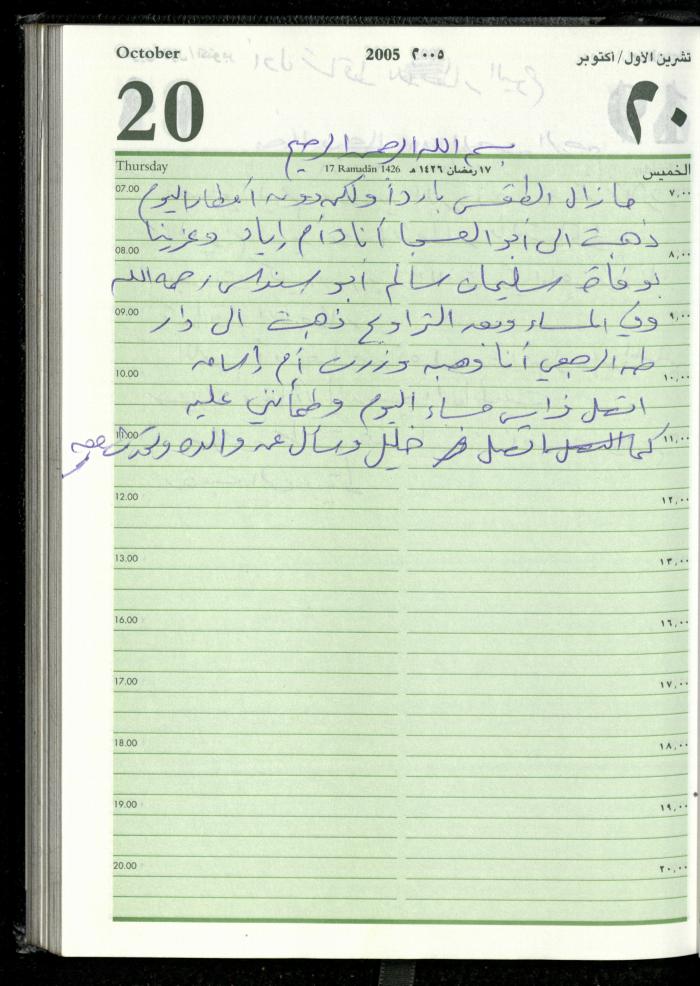 October 2005 ٢٠٠٥ تشرين الأول/أكتوبر
20 ٢٠
بسم الله الرحمن الرحيم
Thursday 17 Ramadān 1426 ١٧ رمضان ١٤٢٦ هـ الخميس
07.00 ٧,٠٠
مازال الطقس بارداً ولكن دون أمطار اليوم
ذهبت الى أبو العسجا أنا وأم إياد وعزينا
08.00 ٨,٠٠
بوفاة سليمان سالم أبو سنداس رحمه الله
09.00 ٩,٠٠
وفي المساء وبعد التراويح ذهبت الى دار
طه الرجعي أنا وهبه وزرت أم إسامه
10.00 ١٠,٠٠
اتصل فراس مساء اليوم وطمأنني عليه
11.00 ١١,٠٠
كما اتصل خليل وسأل عن والده وتحدث معه
12.00 ١٢,٠٠
13.00 ١٣,٠٠
16.00 ١٦,٠٠
17.00 ١٧,٠٠
18.00 ١٨,٠٠
19.00 ١٩,٠٠
20.00 ٢٠,٠٠